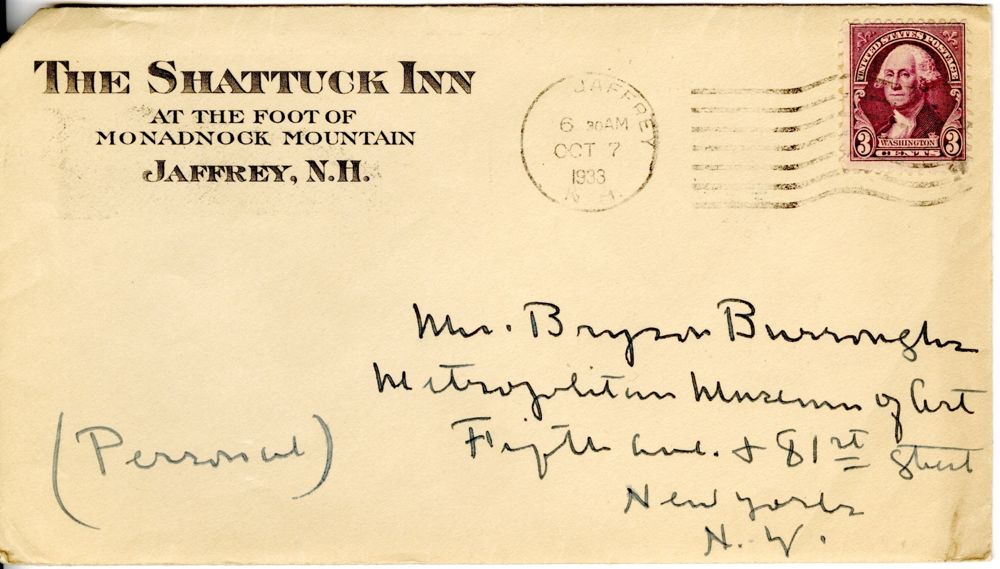 THE SHATTUCK INN
AT THE FOOT OF
MONADNOCK MOUNTAIN
JAFFREY, N.H.
JAFFREY
6 30AM
OCT 7
1933
N.H.
UNITED STATES POSTAGE
3 WASHINGTON 3
CENTS
Mr. Bryson Burroughs
Metropolitan Museum of Art
Fifth Ave. & 81st Street
New York
N.Y.
(Personal)